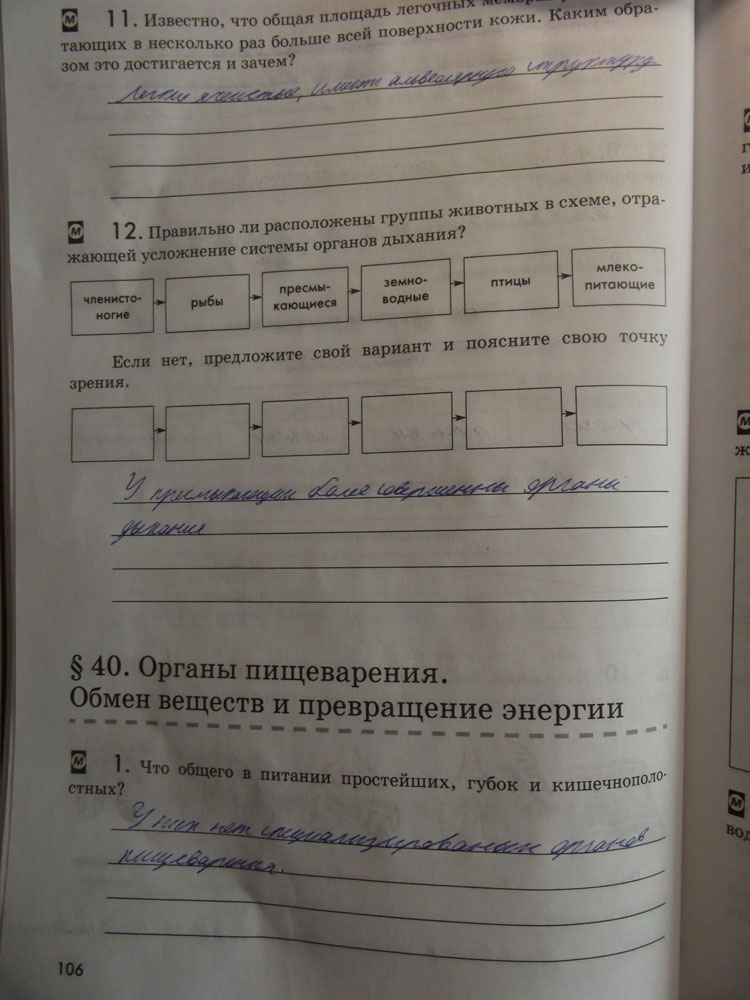 М 11. Известно, что общая площадь легочных
тающих в несколько раз больше всей поверхности кожи. Каким обра-
зом это достигается и зачем?
Легкие ячеистые, имеют альвеолярную структуру
М 12. Правильно ли расположены группы животных в схеме, отра-
жающей усложнение системы органов дыхания?
членисто-
ногие
рыбы
пресмы-
кающиеся
земно-
водные
птицы
млеко-
питающие
Если нет, предложите свой вариант и поясните свою точку
зрения.
У
более
органы
дыхание
§ 40. Органы пищеварения.
Обмен веществ и превращение энергии
М 1. Что общего в питании простейших, губок и кишечнополо-
стных?
У них нет
органов
пищеварения.
106
М
ж
М
вод